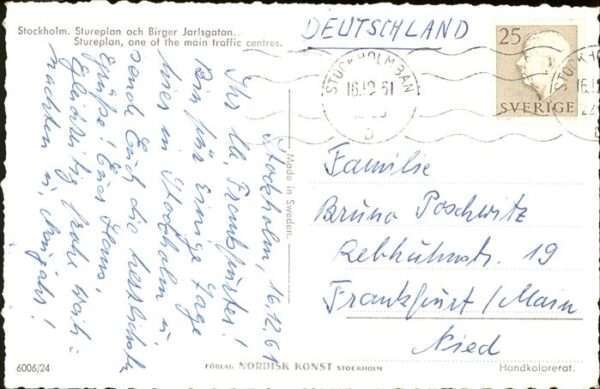 Stockholm. Stureplan och Birger Jarlsgatan.
Stureplan, one of the main traffic centres.
DEUTSCHLAND
25
SVERIGE
STOCKHOLM BAN
16.12 61
STOCKHOLM
16.12
Stockholm, 16.12.61
Ihr lb. Frankfurter!
Bin für einige Tage
hier in Stockholm u.
sende Euch die herzlichsten
Grüße! Euer Hans.
Gleichzeitig frohe Weih-
nachten u. Neujahr!
Made in Sweden.
Familie
Bruno Poschwitz
Rebhuhnstr. 19
Frankfurt/Main
Nied
6006/24
FÖRLAG NORDISK KONST STOCKHOLM
Handkolorerat.